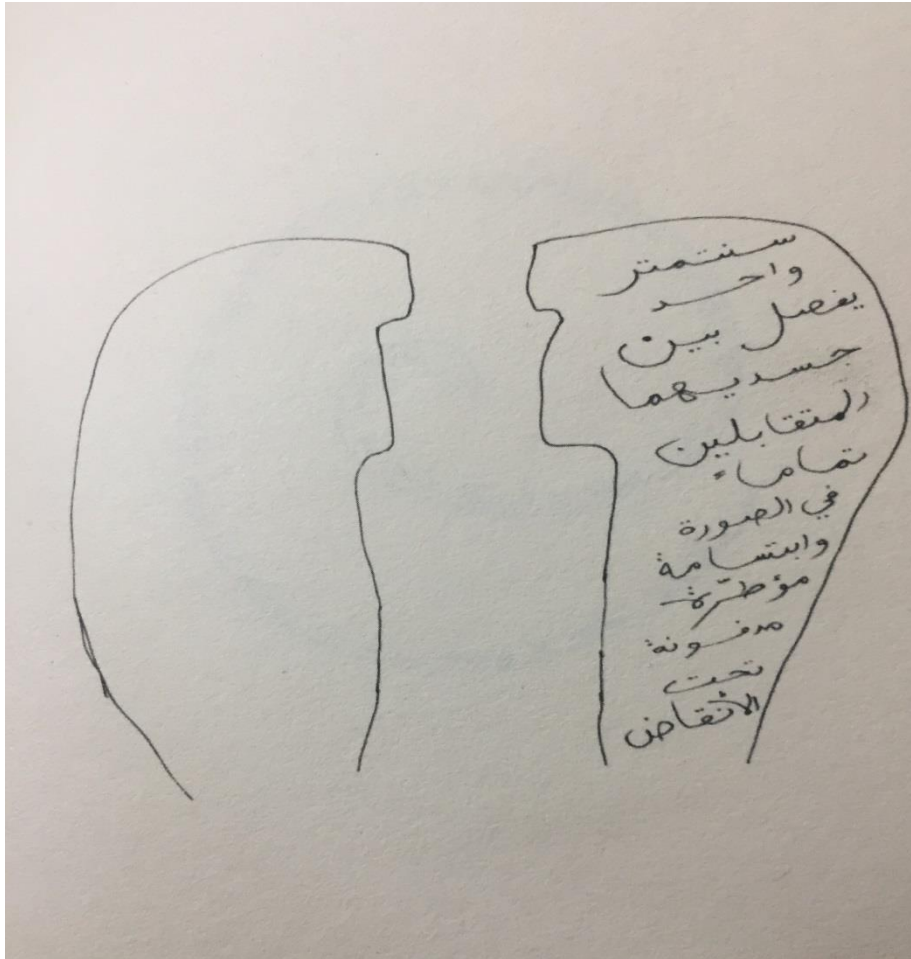 سنتمتر
واحد
يفصل بين
جسديهما
المتقابلين
تماماً
في الصورة
وابتسامة
مؤطرّة
مدفونة
تحت
الأنقاض